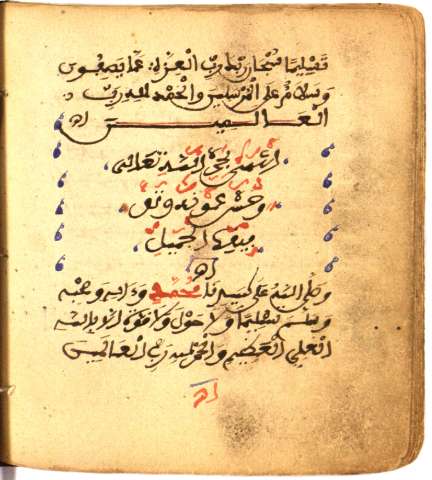 تسليما سبحان ربك رب العزة عما يصفون
وسلام على المرسلين والحمد لله رب
العالمين اه
انتهى بحمد الله تعالى
وحسن عونه وتو
فيقه الجميل
اه
وصلى الله على سيدنا محمد وءاله وصحبه
وسلم تسليما ولا حول ولا قوة إلا بالله
العلي العظيم والحمد لله رب العالمين
اه